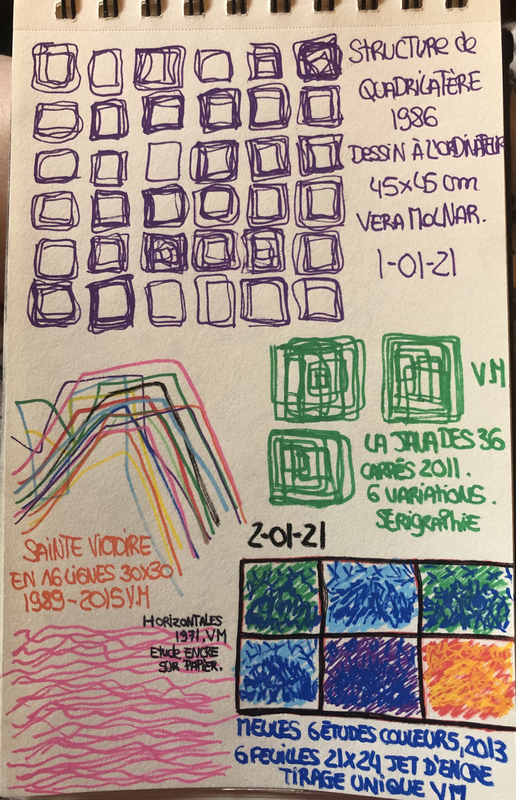 STRUCTURE de
QUADRILATÈRE
1986
DESSIN À L'ORDINATEUR
45x45 cm
VERA MOLNAR.
1-01-21
V.M
LA JALA DES 36
CARRÉS 2011.
6 VARIATIONS.
SÉRIGRAPHIE
2-01-21
SAINTE VICTOIRE
EN 16 LIGNES 30X30
1989-2015 V.M
HORIZONTALES
1971, VM
Etude ENCRE
SUR PAPIER.
MEULES 6 ÉTUDES COULEURS, 2013
6 FEUILLES 21X24 JET D'ENCRE
TIRAGE UNIQUE VM